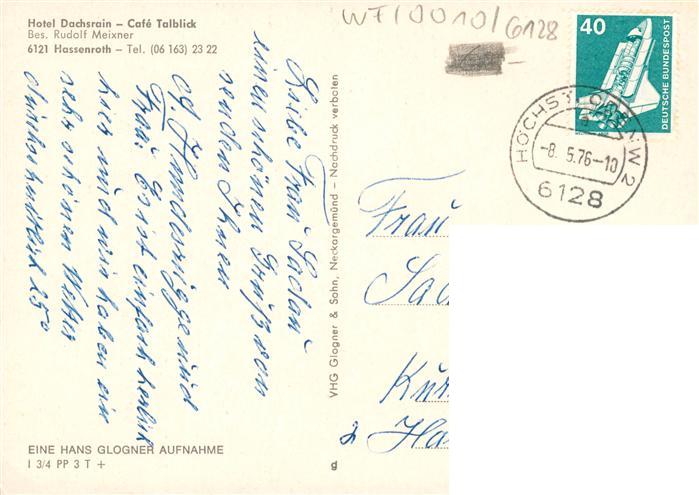 Hotel Dachsrain – Café Talblick
Bes. Rudolf Meixner
6121 Hassenroth – Tel. (06 163) 23 22
WF/0010/6128
40
DEUTSCHE BUNDESPOST
HÖCHST, ODENW 2
-8. 5.76-10
6128
Liebe Frau
einen schönen Gruß von
senden Ihnen
Frau. Es ist einfach herrlich
hier und wir haben ein
sehr schönes Wetter
durchschnittlich 25°
VHG Glogner & Sohn, Neckargemünd – Nachdruck verboten
Frau
EINE HANS GLOGNER AUFNAHME
I 3/4 PP 3 T +
g